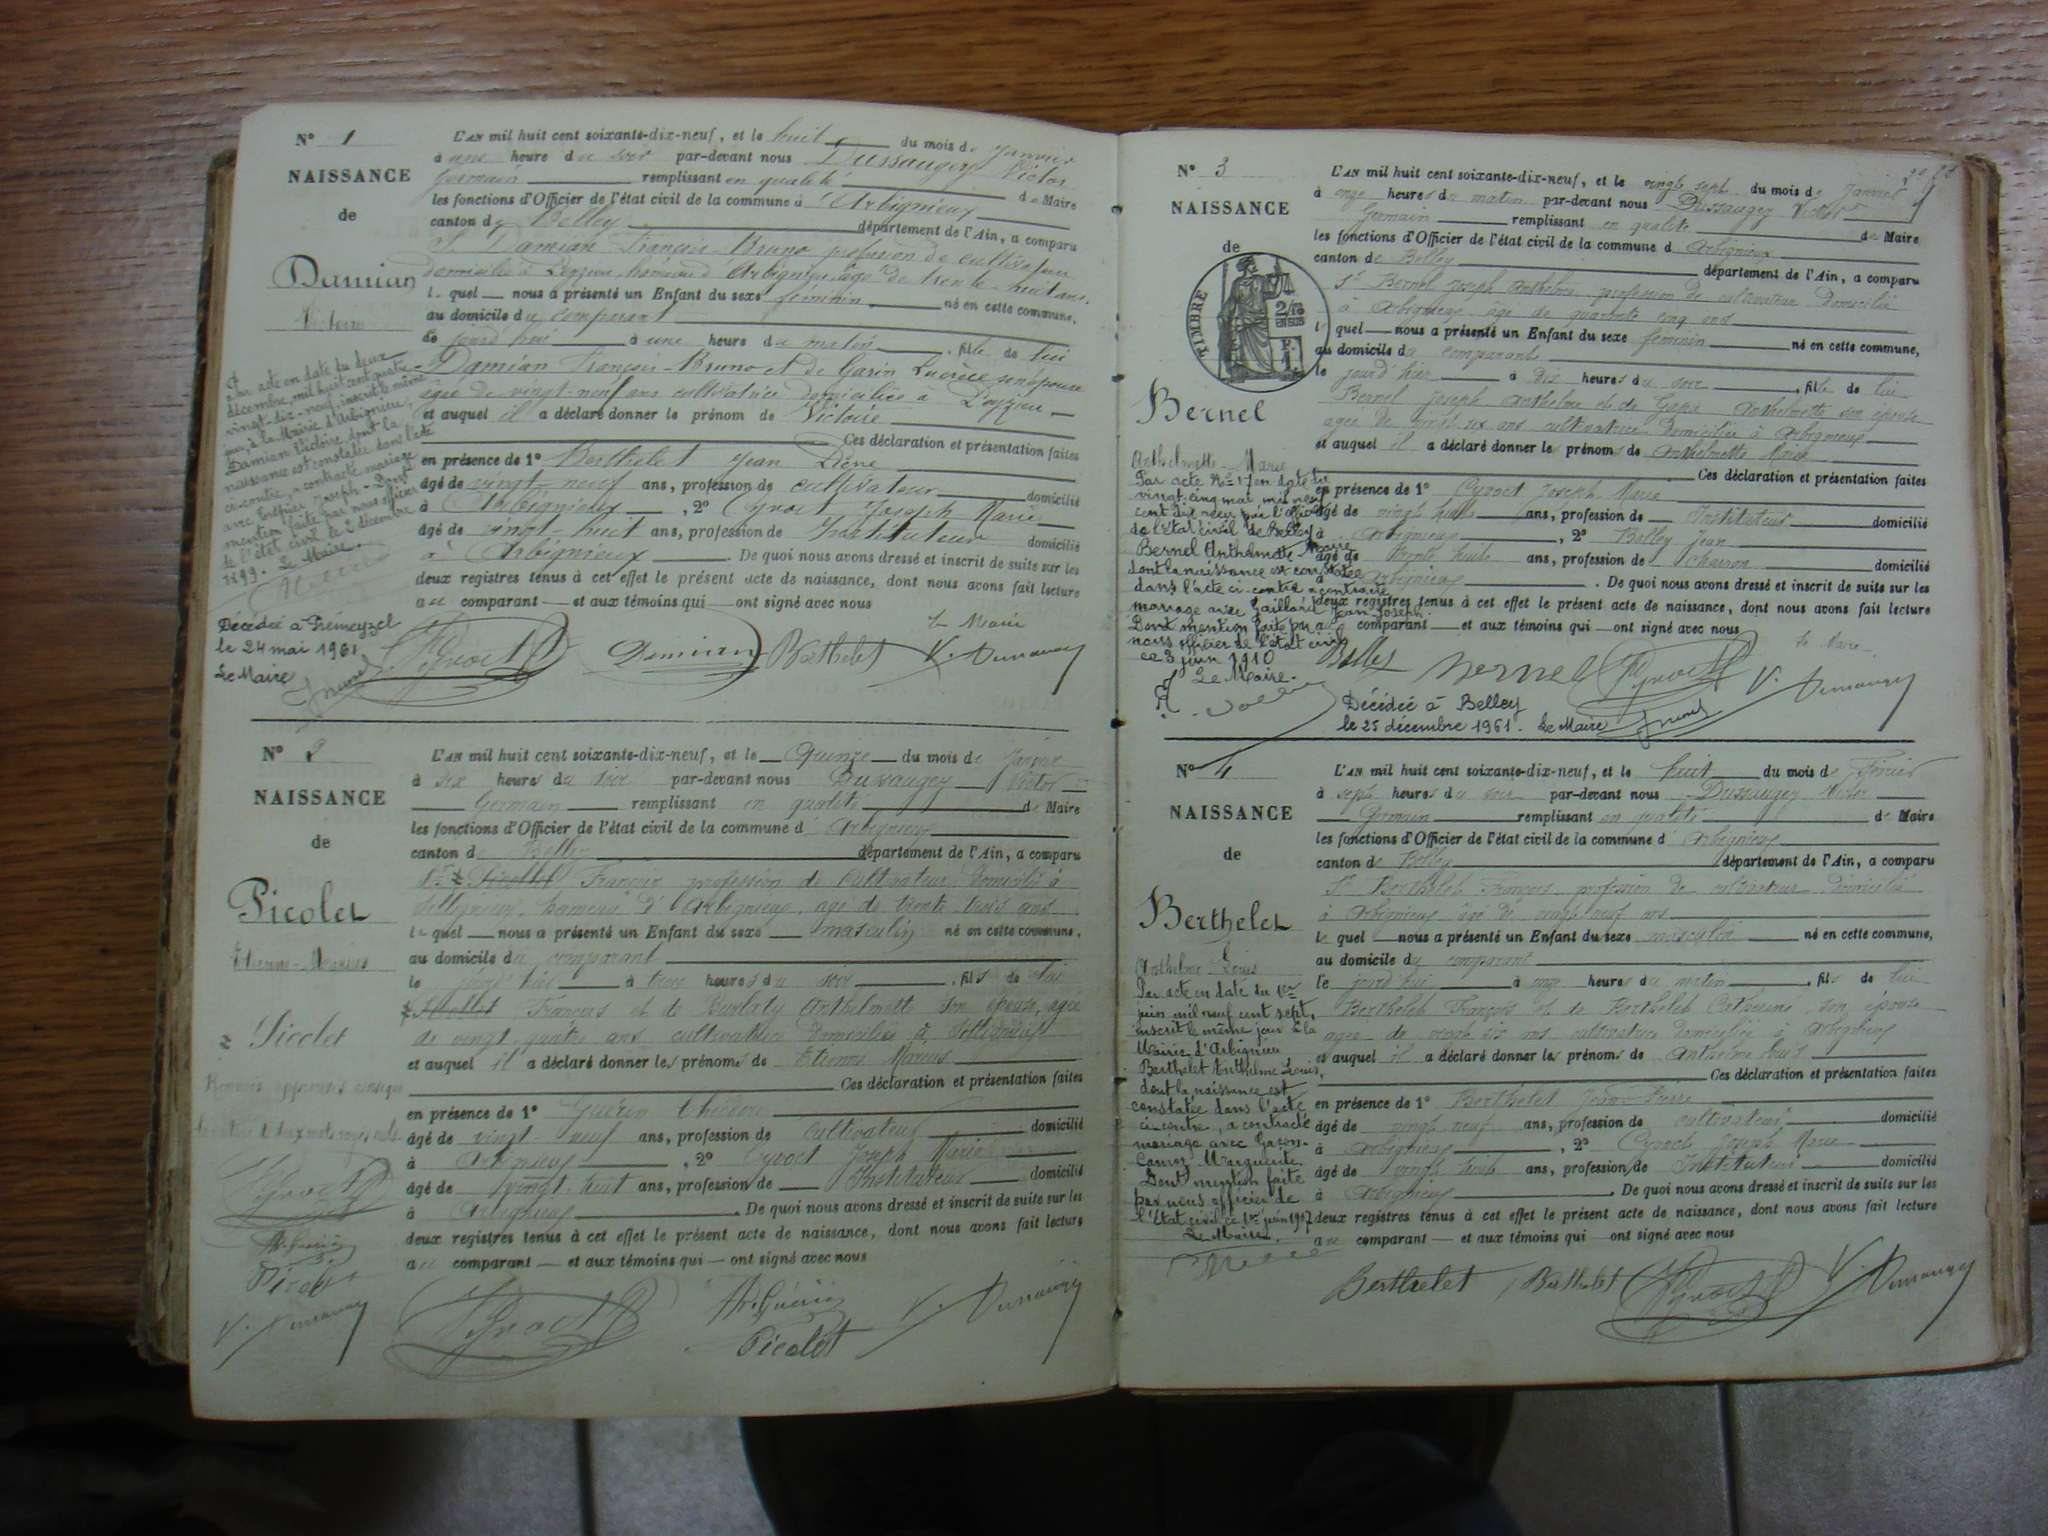 N° 1
NAISSANCE
de
Damian
Victoire
Par acte en date du deux
décembre, mil huit cent quatre
vingt-dix-neuf, inscrit le même
jour, à la Mairie d'Arbignieu,
Damian Victoire dont la
naissance est constatée dans l'acte
ci-contre, a contracté mariage
avec Joseph. Dont
mention faite par nous officier
de l'état civil le 2 décembre
1899. Le Maire.
Décédée à Prémeyzel
le 24 mai 1961
Le Maire
L'AN mil huit cent soixante-dix-neuf, et le huit du mois de Janvier
à une heure du soir par-devant nous Dussaugey Victor
Germain remplissant en qualité de Maire
les fonctions d'Officier de l'état civil de la commune d'Arbignieux
canton de Belley département de l'Ain, a comparu
Sr Damian François-Bruno profession de cultivateur
domicilié à Loyzieu, hameau d'Arbignieu, âgé de trente-huit ans.
lequel nous a présenté un Enfant du sexe féminin né en cette commune,
au domicile du comparant
le jourd'hui à une heure du matin, fille de lui
Damian François-Bruno et de Garin Lucrèce son épouse
âgée de vingt-neuf ans cultivatrice domiciliée à Loyzieu
et auquel il a déclaré donner le prénom de Victoire
Ces déclaration et présentation faites
en présence de 1° Berthelet Jean Pierre
âgé de vingt-neuf ans, profession de cultivateur domicilié
à Arbignieux, 2° Cyvoct Joseph Marie
âgé de vingt-huit ans, profession de Instituteur domicilié
à Arbignieux. De quoi nous avons dressé et inscrit de suite sur les
deux registres tenus à cet effet le présent acte de naissance, dont nous avons fait lecture
au comparant et aux témoins qui ont signé avec nous
Le Maire
Cyvoct Damian Berthelet V. Dussaugey
N° 2
NAISSANCE
de
Picolet
Etienne-Marius
Picolet
Cyvoct
Th. Guérin
Picolet
V. Dussaugey
L'AN mil huit cent soixante-dix-neuf, et le Quinze du mois de Janvier
à six heures du soir par-devant nous Dussaugey Victor
Germain remplissant en qualité de Maire
les fonctions d'Officier de l'état civil de la commune d'Arbignieu
canton de Belley département de l'Ain, a comparu
Sr Picollet François profession de cultivateur domicilié à
hameau d'Arbignieu, âgé de trente-trois ans
lequel nous a présenté un Enfant du sexe masculin né en cette commune,
au domicile du comparant
le jourd'hui à trois heures du soir, fils de lui
Picollet François et de Anthelmette son épouse, âgée
de vingt-quatre ans cultivatrice domiciliée à
et auquel il a déclaré donner les prénoms de Etienne Marius
Ces déclaration et présentation faites
en présence de 1° Guérin Théodore
âgé de vingt-neuf ans, profession de cultivateur domicilié
à Arbignieu, 2° Cyvoct Joseph Marie
âgé de vingt-huit ans, profession de Instituteur domicilié
à Arbignieu. De quoi nous avons dressé et inscrit de suite sur les
deux registres tenus à cet effet le présent acte de naissance, dont nous avons fait lecture
au comparant et aux témoins qui ont signé avec nous
Cyvoct Th. Guérin V. Dussaugey
Picolet
N° 3
NAISSANCE
de
TIMBRE
2/10
EN SUS
Bernel
Anthelmette-Marie
Par acte No 17 en date du
vingt-cinq mai mil neuf
cent dix reçu par l'officier
de l'état civil de Belley
Bernel Anthelmette Marie
dont la naissance est constatée
dans l'acte ci-contre a contracté
mariage avec Gaillard Jean Joseph.
Dont mention faite par
nous officier de l'état civil
ce 3 juin 1910
Le Maire.
L'AN mil huit cent soixante-dix-neuf, et le vingt sept du mois de Janvier
à onze heures du matin par-devant nous Dussaugey Victor
Germain remplissant en qualité de Maire
les fonctions d'Officier de l'état civil de la commune d'Arbignieu
canton de Belley département de l'Ain, a comparu
Sr Bernel Joseph Anthelme, profession de cultivateur domicilié
à Arbignieu âgé de quarante cinq ans
lequel nous a présenté un Enfant du sexe féminin né en cette commune,
au domicile du comparant
le jour d'hier à dix heures du soir, fille de lui
Bernel Joseph Anthelme et de Anthelmette son épouse
âgée de ans cultivatrice domiciliée à Arbignieu
et auquel il a déclaré donner les prénoms de Anthelmette Marie
Ces déclaration et présentation faites
en présence de 1° Cyvoct Joseph Marie
âgé de vingt huit ans, profession de Instituteur domicilié
à Arbignieu, 2° Belley Jean
âgé de trente huit ans, profession de charron domicilié
à Arbignieu. De quoi nous avons dressé et inscrit de suite sur les
deux registres tenus à cet effet le présent acte de naissance, dont nous avons fait lecture
au comparant et aux témoins qui ont signé avec nous
Le Maire
Belley Bernel Cyvoct V. Dussaugey
Décédée à Belley
le 25 décembre 1961. Le Maire
N° 4
NAISSANCE
de
Berthelet
Anthelme-Louis
Par acte en date du 1er
juin mil neuf cent sept,
inscrit le même jour à la
Mairie d'Arbignieu
Berthelet Anthelme Louis,
dont la naissance est
constatée dans l'acte
ci-contre, a contracté
mariage avec
Marguerite.
Dont mention faite
par nous officier de
l'Etat civil ce 1er juin 1907
Le Maire.
L'AN mil huit cent soixante-dix-neuf, et le huit du mois de Février
à sept heures du soir par-devant nous Dussaugey Victor
Germain remplissant en qualité de Maire
les fonctions d'Officier de l'état civil de la commune d'Arbignieu
canton de Belley département de l'Ain, a comparu
Sr Berthelet François profession de cultivateur domicilié
à Arbignieu âgé de vingt neuf ans
lequel nous a présenté un Enfant du sexe masculin né en cette commune,
au domicile du comparant
le jourd'hui à onze heures du matin, fils de lui
Berthelet François et de Berthelet son épouse
âgée de vingt six ans cultivatrice domiciliée à Arbignieu
et auquel il a déclaré donner les prénoms de Anthelme Louis
Ces déclaration et présentation faites
en présence de 1° Berthelet Jean Pierre
âgé de vingt neuf ans, profession de cultivateur domicilié
à Arbignieu, 2° Cyvoct Joseph Marie
âgé de vingt huit ans, profession de Instituteur domicilié
à Arbignieu. De quoi nous avons dressé et inscrit de suite sur les
deux registres tenus à cet effet le présent acte de naissance, dont nous avons fait lecture
au comparant et aux témoins qui ont signé avec nous
Berthelet Berthelet Cyvoct V. Dussaugey